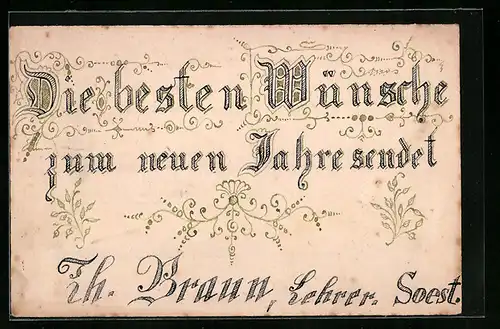 Die besten Wünsche
zum neuen Jahre sendet
Th. Braun, Lehrer. Soest.